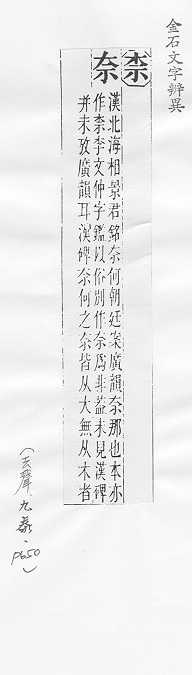 金石文字辨異
柰
奈
漢北海相景君銘奈何朝廷案廣韻奈那也本亦
作柰李文仲字鑑以俗別作奈爲非葢未見漢碑
并未攷廣韻耳漢碑奈何之奈皆从大無从木者
(去聲．九泰．P650)